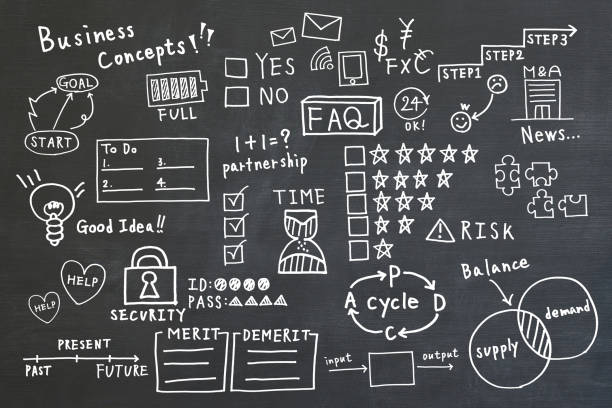 Business
Concepts!!
GOAL
START
FULL
YES
NO
$ ¥
FX€
STEP1
STEP2
STEP3
M&A
News...
FAQ
24
OK!
To Do
1.
2.
3.
4.
1+1=?
partnership
TIME
Good Idea!!
RISK
HELP
HELP
SECURITY
ID:
PASS:
P
A cycle D
C
Balance
supply
demand
PRESENT
PAST
FUTURE
MERIT
DEMERIT
input
output